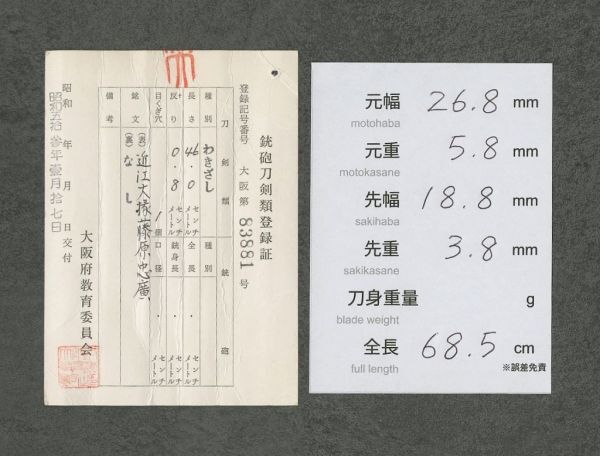 銃砲刀剣類登録証
登録記号番号 大阪第 83881 号
刀剣類 銃砲
種別 わきざし 種別
長さ 46.0 センチメートル 全長 . センチメートル
反り 0.8 センチメートル 銃身長 . センチメートル
目くぎ穴 1個 口径 . センチメートル
銘文 (表) 近江大掾藤原忠廣
(裏) なし
備考
昭和 年 月 日交付
昭和五拾参年壹月拾七日
大阪府教育委員会
元幅 26.8 mm
motohaba
元重 5.8 mm
motokasane
先幅 18.8 mm
sakihaba
先重 3.8 mm
sakikasane
刀身重量 g
blade weight
全長 68.5 cm
full length
※誤差免責